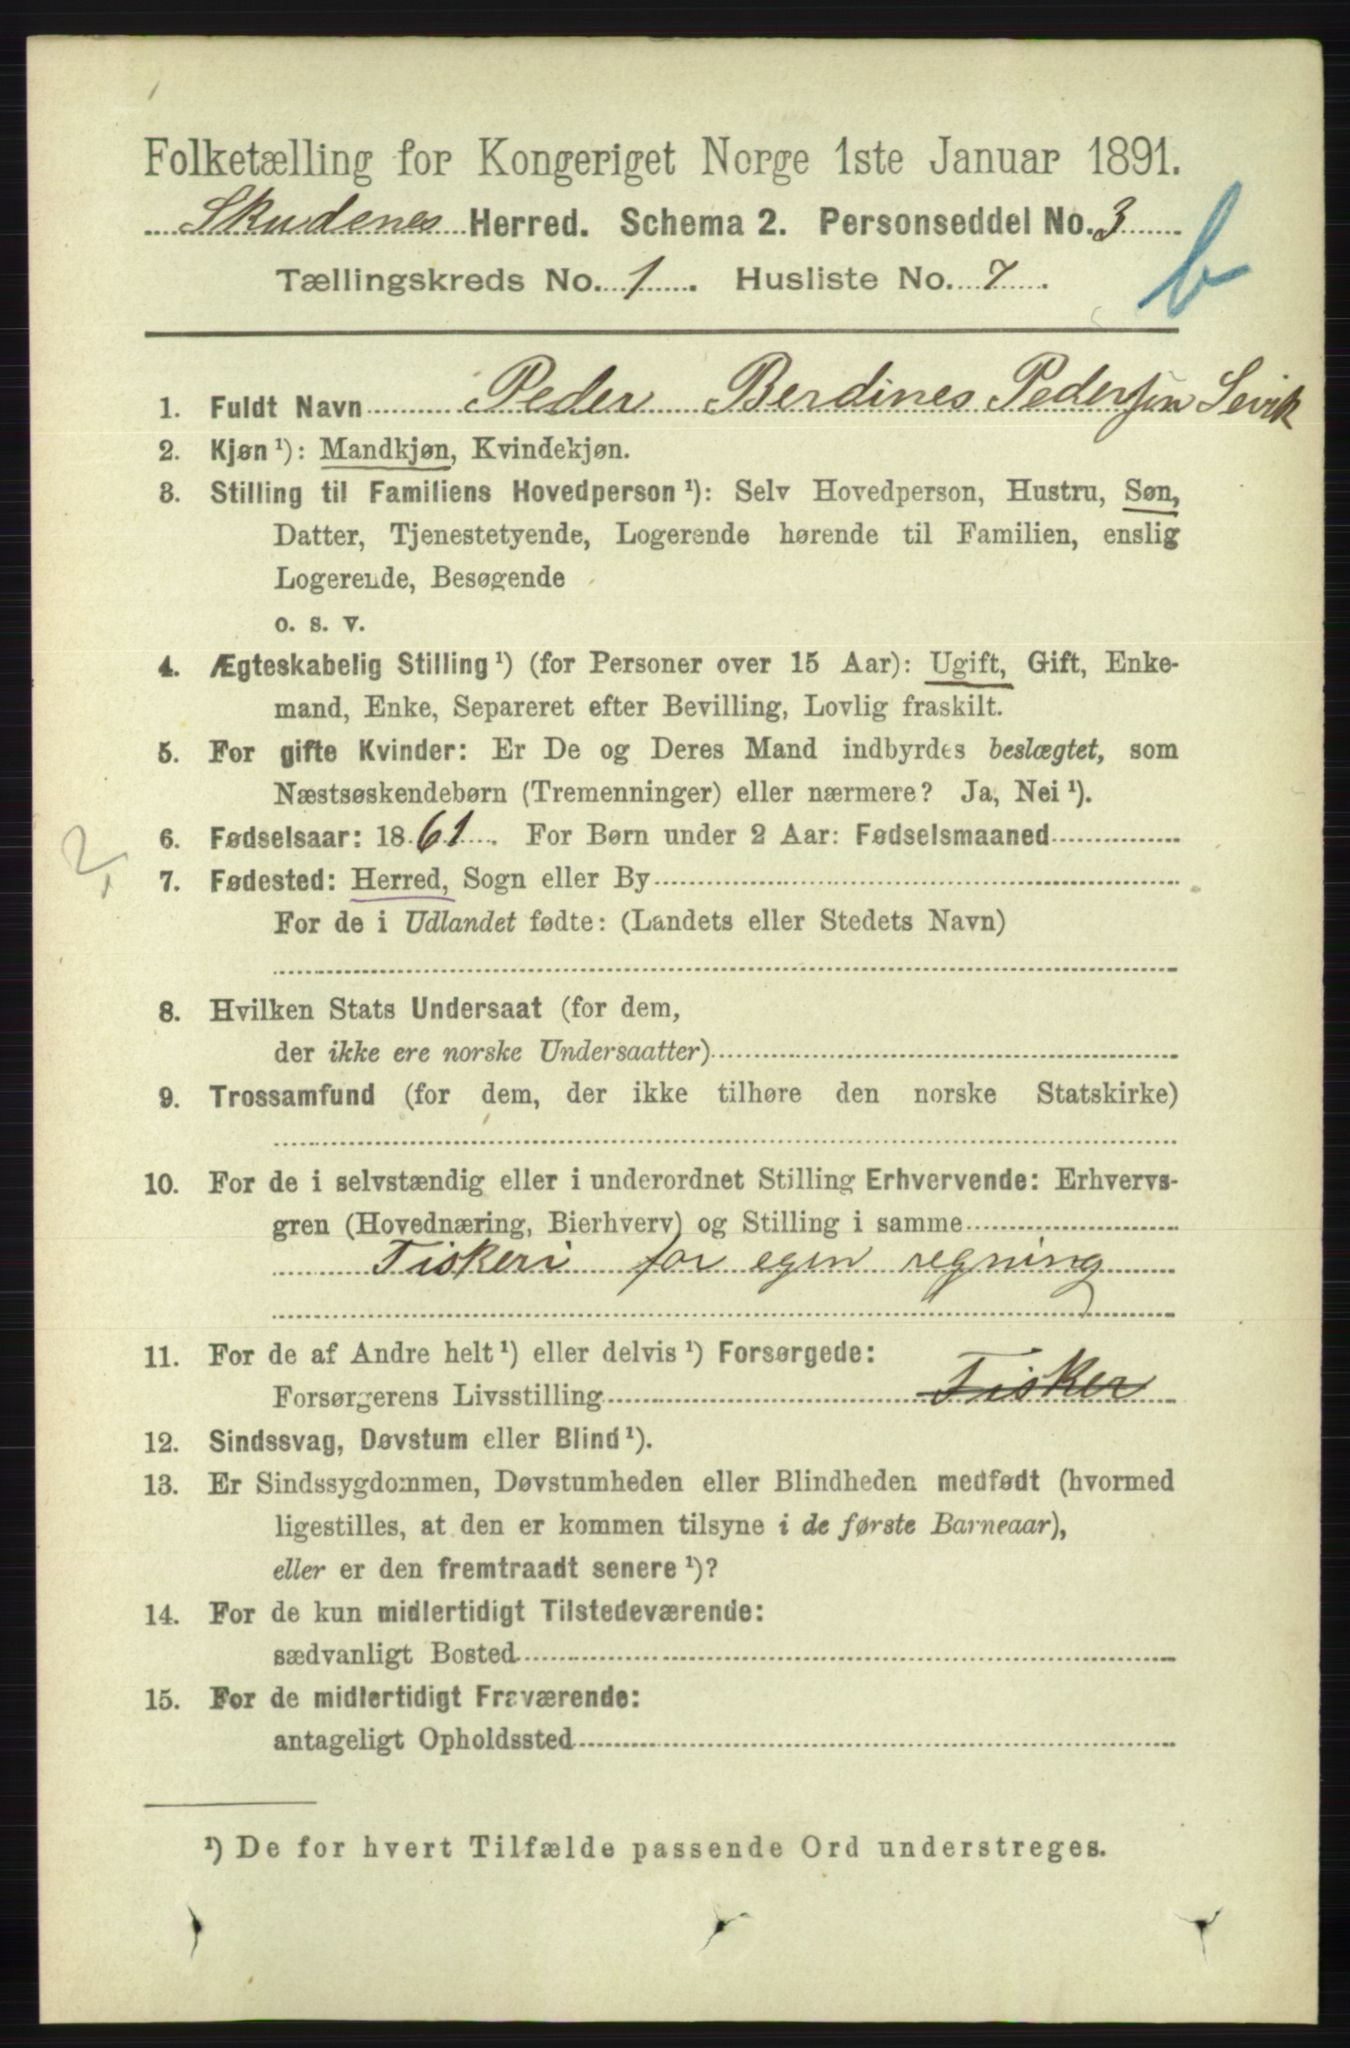 Folketælling for Kongeriget Norge 1ste Januar 1891.
Skudenes Herred. Schema 2. Personseddel No. 3
Tællingskreds No. 1. Husliste No. 7.
b
1. Fuldt Navn Peder Berdines Pedersen Sevik
2. Kjøn ¹): Mandkjøn, Kvindekjøn.
3. Stilling til Familiens Hovedperson ¹): Selv Hovedperson, Hustru, Søn,
Datter, Tjenestetyende, Logerende hørende til Familien, enslig
Logerende, Besøgende
o. s. v.
4. Ægteskabelig Stilling ¹) (for Personer over 15 Aar): Ugift, Gift, Enke-
mand, Enke, Separeret efter Bevilling, Lovlig fraskilt.
5. For gifte Kvinder: Er De og Deres Mand indbyrdes beslægtet, som
Næstsøskendebørn (Tremenninger) eller nærmere? Ja, Nei ¹).
6. Fødselsaar: 1861. For Børn under 2 Aar: Fødselsmaaned
7. Fødested: Herred, Sogn eller By
For de i Udlandet fødte: (Landets eller Stedets Navn)
8. Hvilken Stats Undersaat (for dem,
der ikke ere norske Undersaatter)
9. Trossamfund (for dem, der ikke tilhøre den norske Statskirke)
10. For de i selvstændig eller i underordnet Stilling Erhvervende: Erhvervs-
gren (Hovednæring, Bierhverv) og Stilling i samme
Fiskeri for egen regning
11. For de af Andre helt ¹) eller delvis ¹) Forsørgede:
Forsørgerens Livsstilling Fisker
12. Sindssvag, Døvstum eller Blind ¹).
13. Er Sindssygdommen, Døvstumheden eller Blindheden medfødt (hvormed
ligestilles, at den er kommen tilsyne i de første Barneaar),
eller er den fremtraadt senere ¹)?
14. For de kun midlertidigt Tilstedeværende:
sædvanligt Bosted
15. For de midlertidigt Fraværende:
antageligt Opholdssted
¹) De for hvert Tilfælde passende Ord understreges.